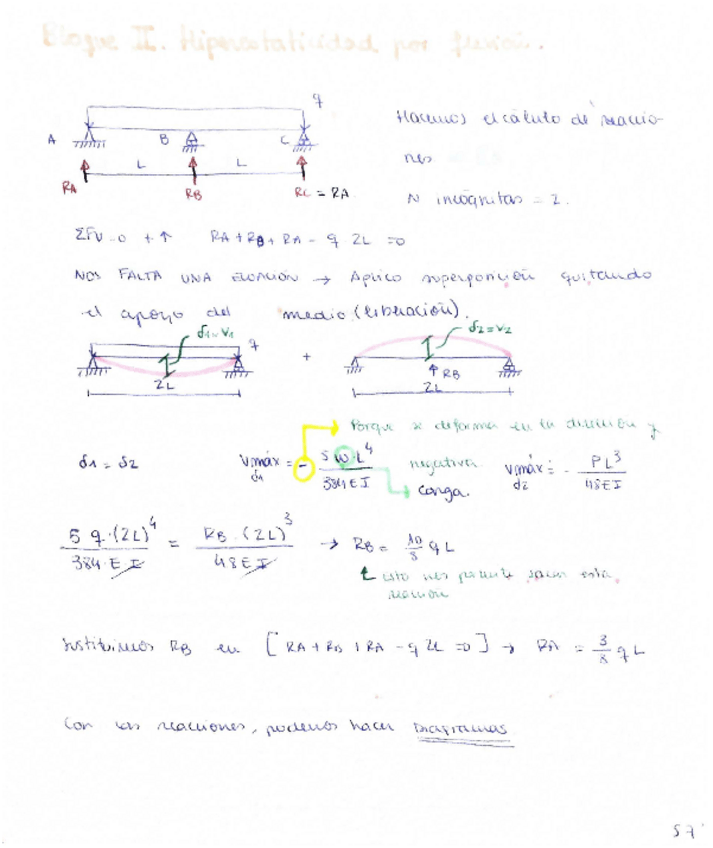 Bloque II. Hiperestaticidad por flexión.
q
Hacemos el cálculo de reaccio-
nes
A B C
L L
RA RB RC = RA
N incógnitas = 2.
ΣFV=0 + ↑ RA + RB + RA - q 2L = 0
NOS FALTA UNA ECUACIÓN → Aplico superposición quitando
el apoyo del medio (liberación).
δ1=V1 q
δ2=V2
+
RB
2L 2L
Porque se deforma en la dirección y
negativa.
δ1 = δ2
Vmáx = - 5 W L⁴ / 384 E I
δ1
carga.
Vmáx = - P L³ / 48 E I
δ2
5 q·(2L)⁴ / 384·E I = RB·(2L)³ / 48 E I → RB = 10/8 q L
esto nos permite sacar esta
reacción
Sustituimos RB en [RA + RB + RA - q 2L = 0] → RA = 3/8 q L
Con las reacciones, podemos hacer Diagramas
57